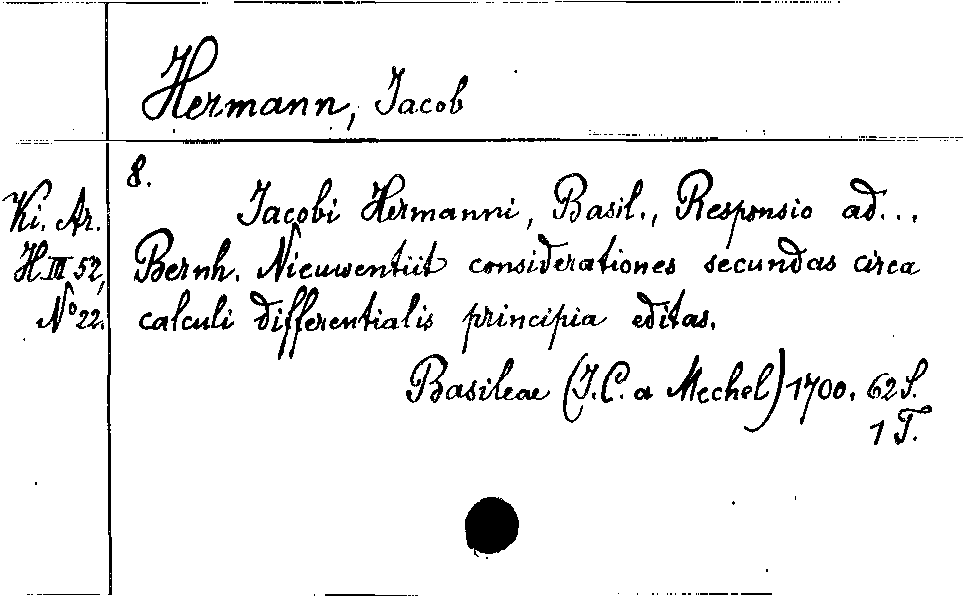 Hermann, Jacob
8.
Ki. Ar.
H III 52,
No 22.
Jacobi Hermanni, Basil., Responsio ad...
Bernh. Nieuwentiit considerationes secundas circa
calculi differentialis principia editas.
Basileae (J. C. a Mechel) 1700. 62 S.
1 T.